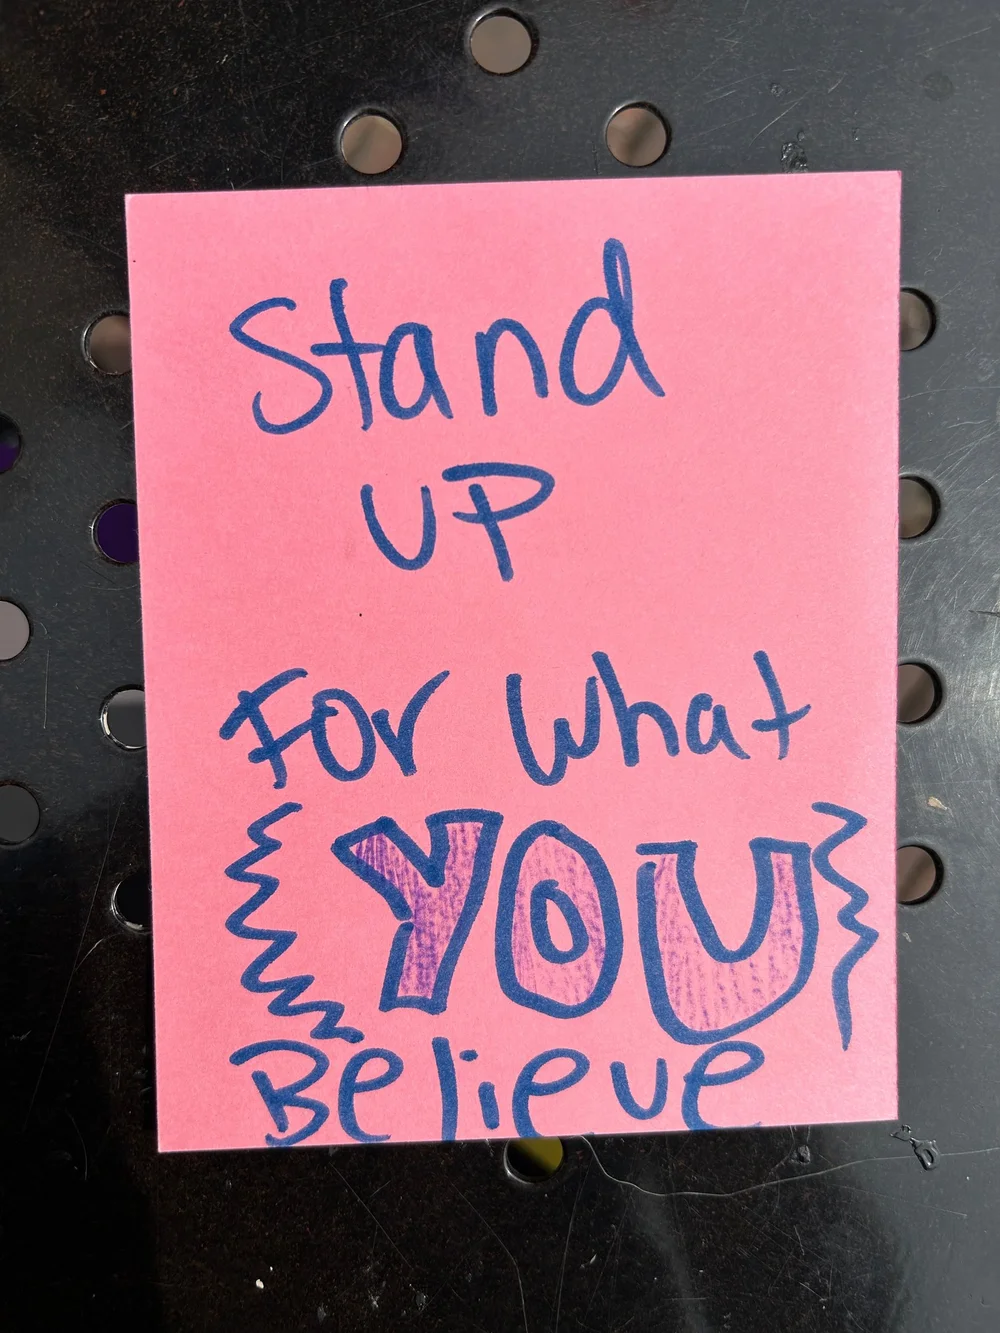 Stand
UP
For what
YOU
Believe